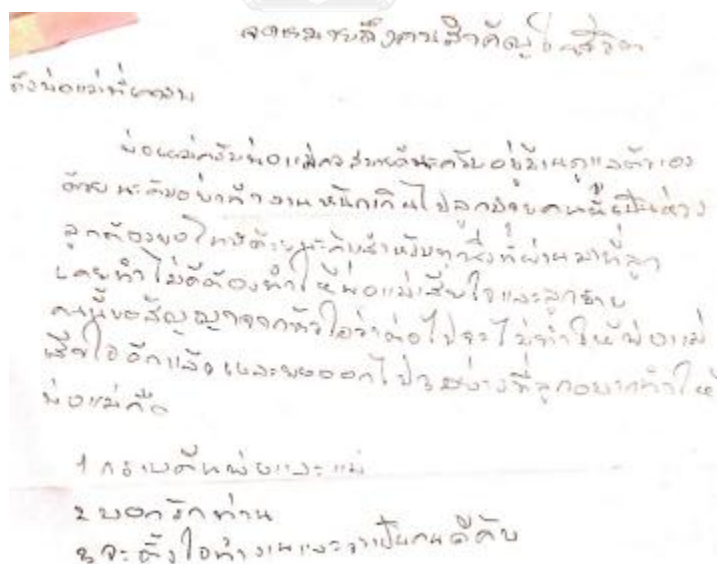 จดหมายถึงคนสำคัญในชีวิต
ถึงพ่อแม่ที่เคารพ
พ่อแม่ครับพ่อแม่คงสบายดีนะครับอยู่บ้านดูแลตัวเอง
ด้วยนะคับอย่าทำงานหนักเกินไปลูกชายคนนี้เป็นห่วง
ลูกต้องขอโทษด้วยนะคับสำหรับทุกสิ่งที่ผ่านมาที่ลูก
เคยทำไม่ดีต้องทำให้พ่อแม่เสียใจและลูกชาย
คนนี้ขอสัญญาจากหัวใจว่าต่อไปจะไม่ทำให้พ่อแม่
เสียใจอีกแล้วและพอออกไป 3 อย่างที่ลูกอยากทำให้
พ่อแม่คือ
1 กราบตีนพ่อและแม่
2 บอกรักท่าน
3 จะตั้งใจทำงานและจะเป็นคนดีคับ